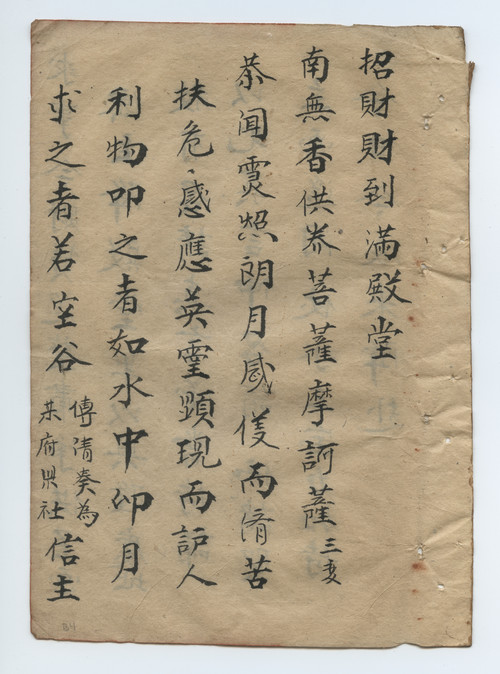 招財財到滿殿堂
南無香供养菩薩摩訶薩三变
恭闻灵照朗月威仗而済苦
扶危感應英霊顕現而護人
利物叩之者如水中仰月
求之者若空谷
傳清奏為
某府县社
信主